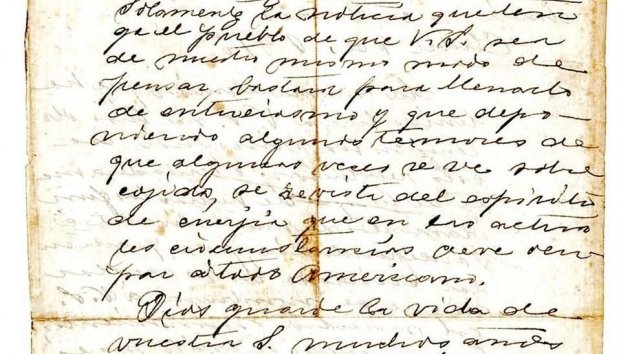 Solamente la noticia que ten
ga el pueblo de que V.S. sea
de nuestro mismo modo de
pensar, bastara para llenarlo
de entuciasmo y que depo-
niendo algunos temores de
que algunas veces se ve sobre
cojido, se revista del espiritu
de energia que en las actua
les circunstancias deve ocu
par átodo Americano.
Dios guarde la vida de
vuestra S. muchos años